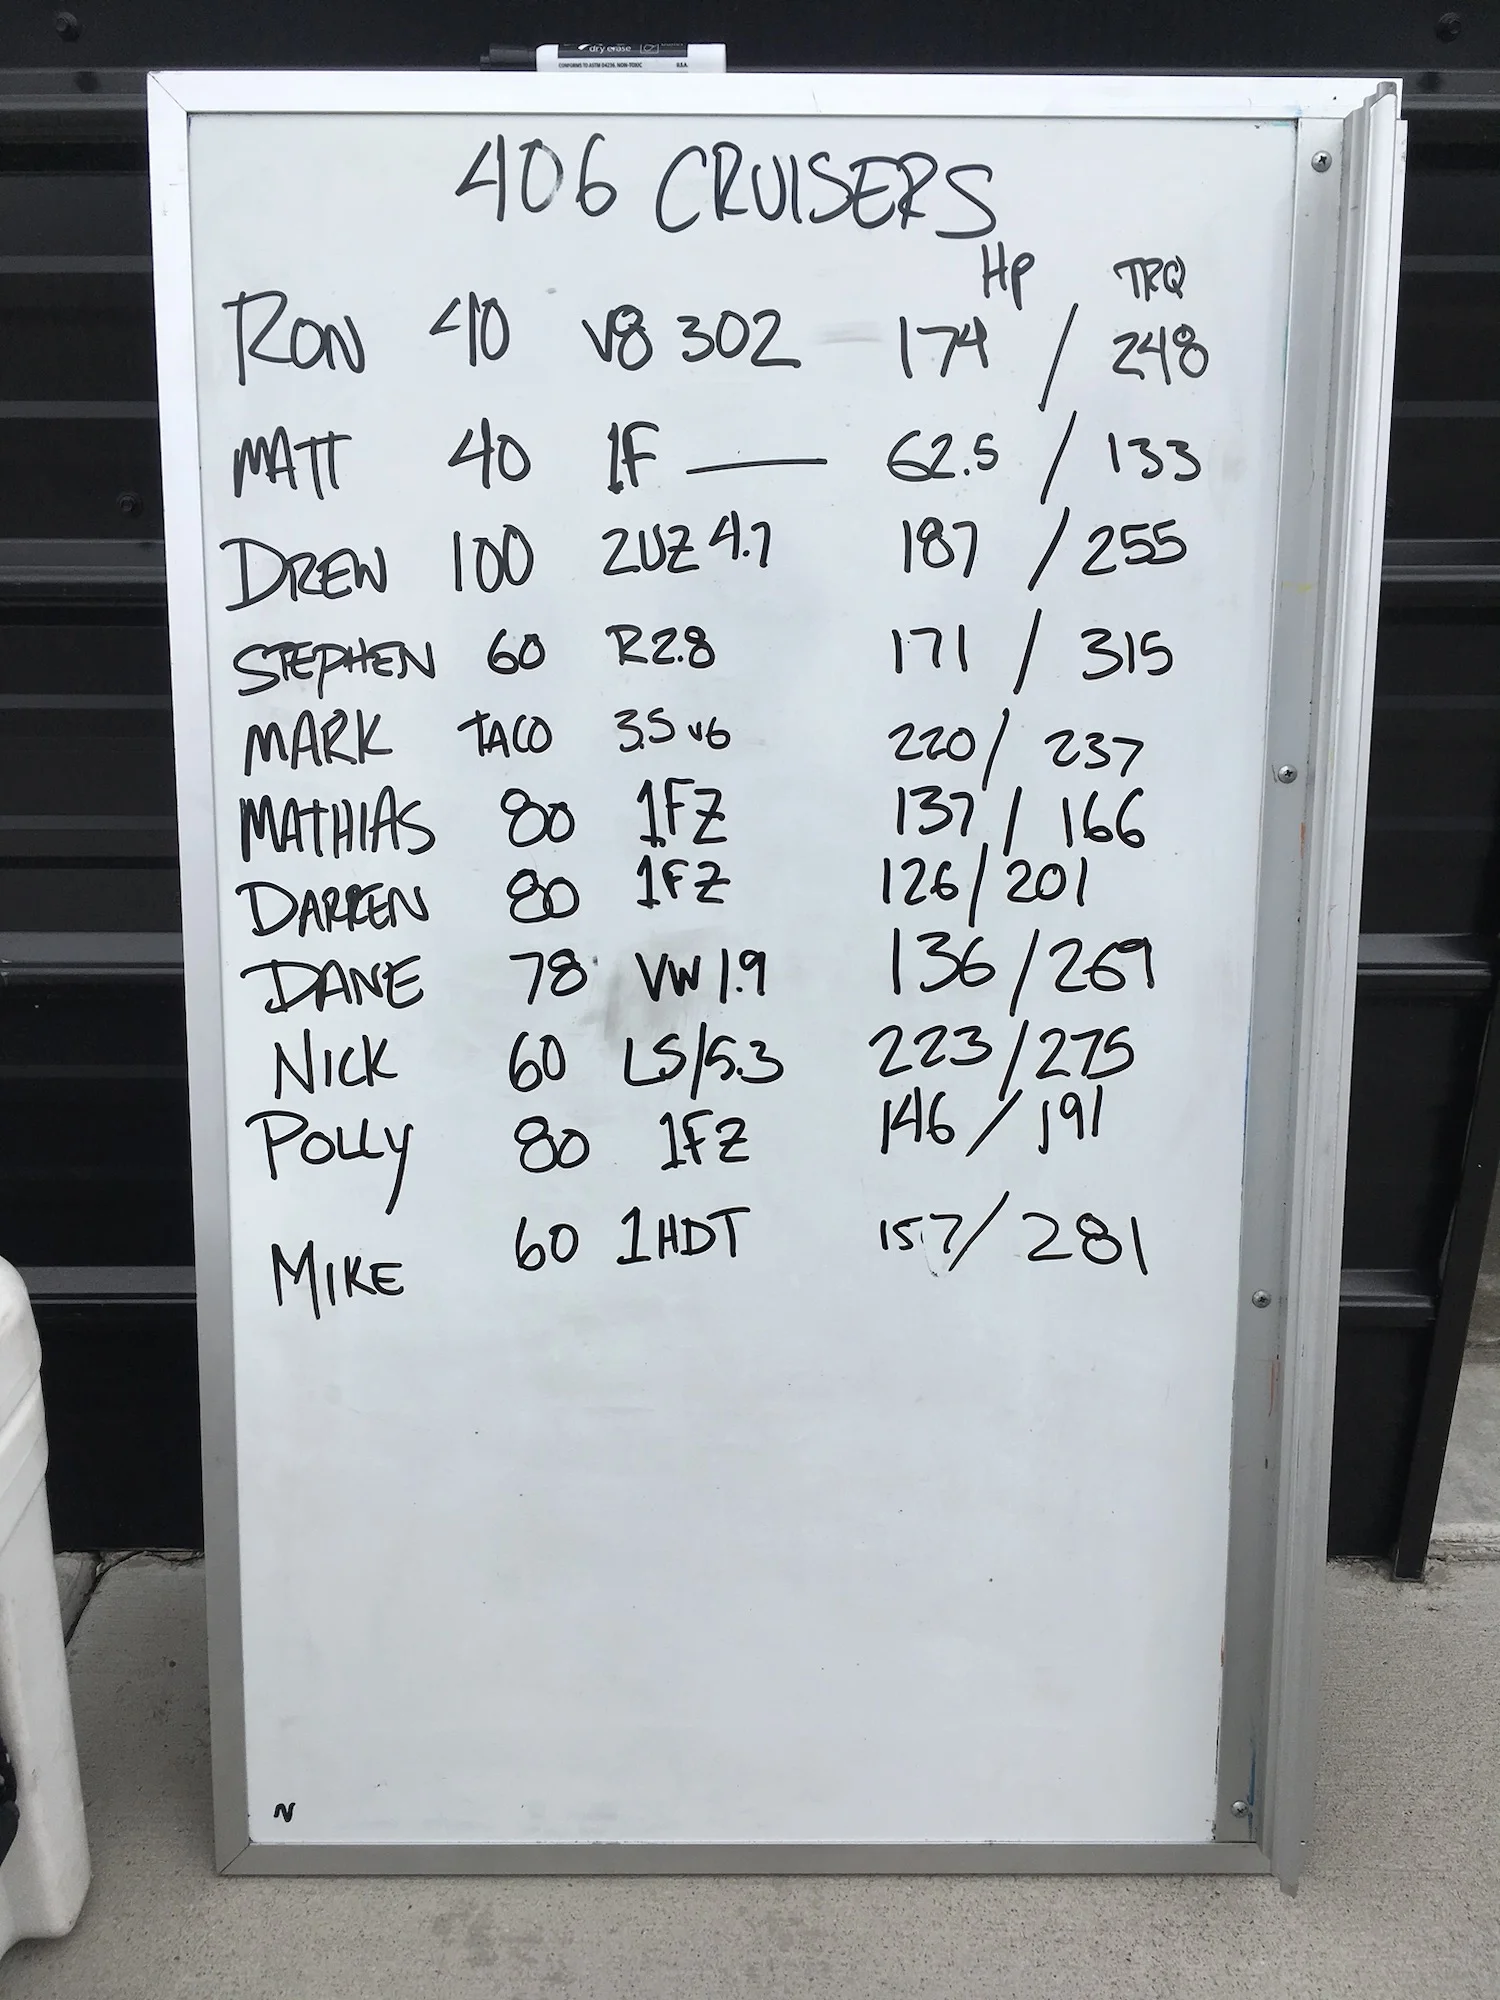 dry erase
CONFORMS TO ASTM D4236, NON-TOXIC U.S.A.
406 CRUISERS
Hp TRQ
RON 40 V8 302 174 / 248
MATT 40 1F — 62.5 / 133
DREW 100 2UZ 4.7 187 / 255
STEPHEN 60 R2.8 171 / 315
MARK TACO 3.5 V6 220 / 237
MATHIAS 80 1FZ 137 / 166
DARREN 80 1FZ 126 / 201
DANE 78 VW 1.9 136 / 269
NICK 60 LS/5.3 223 / 275
POLLY 80 1FZ 146 / 191
MIKE 60 1HDT 157 / 281
N